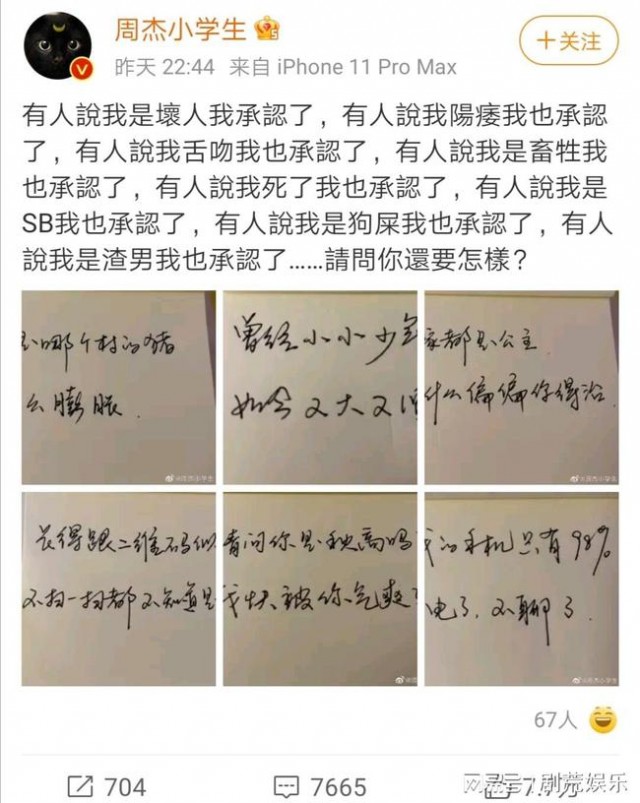 周杰小学生
+关注
昨天 22:44 来自 iPhone 11 Pro Max
有人說我是壞人我承認了，有人說我陽痿我也承認
了，有人說我舌吻我也承認了，有人說我是畜牲我
也承認了，有人說我死了我也承認了，有人說我是
SB我也承認了，有人說我是狗屎我也承認了，有人
說我是渣男我也承認了……請問你還要怎樣？
是哪个村的猪
么膨胀.
曾经小小少年
如今又大又
家都是公主
什么偏偏你得治.
@周杰小学生
@周杰小学生
长得跟二维码似
不扫一扫都不知道是
青问你是秋高吗
我快被你气爽了
我的手机只有98%
电了. 不聊了.
@周杰小学生
67人
704
7665
网易号 剧荒娱乐